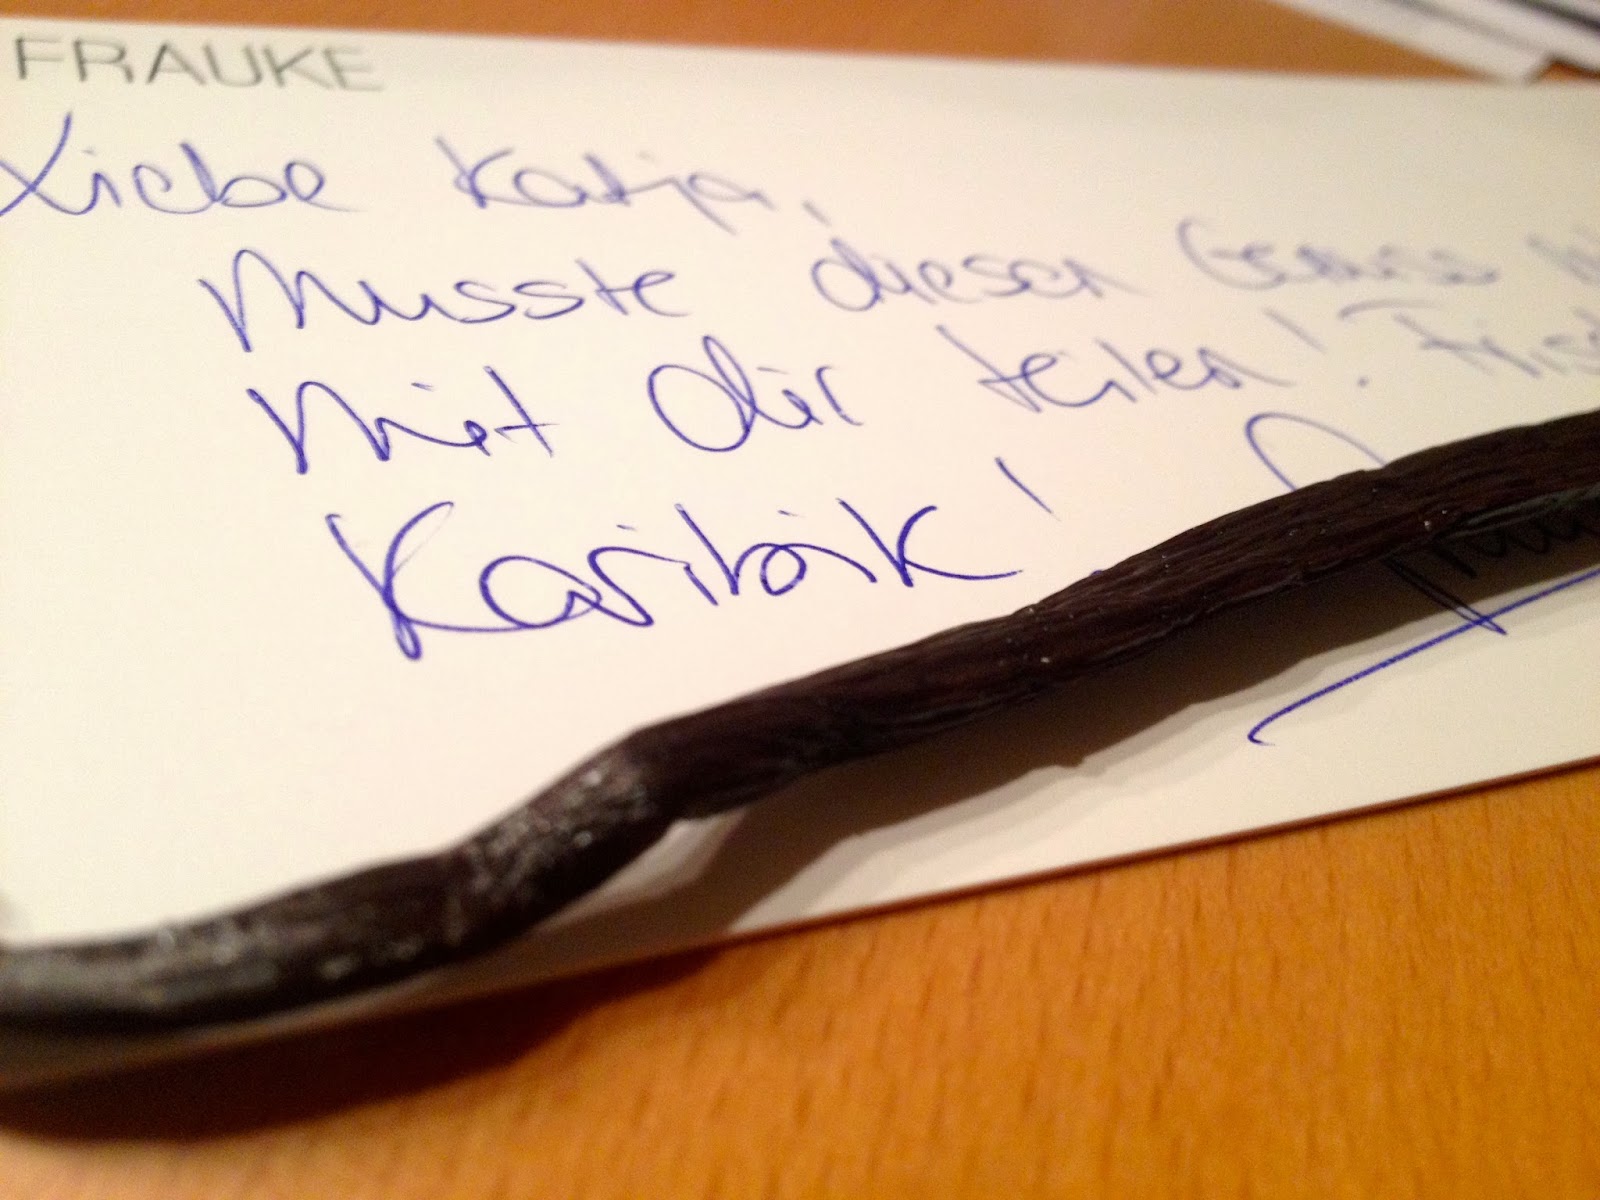 FRAUKE
Liebe Katja,
Musste diesen Genuss
mit dir teilen! Frisch
Karibik!